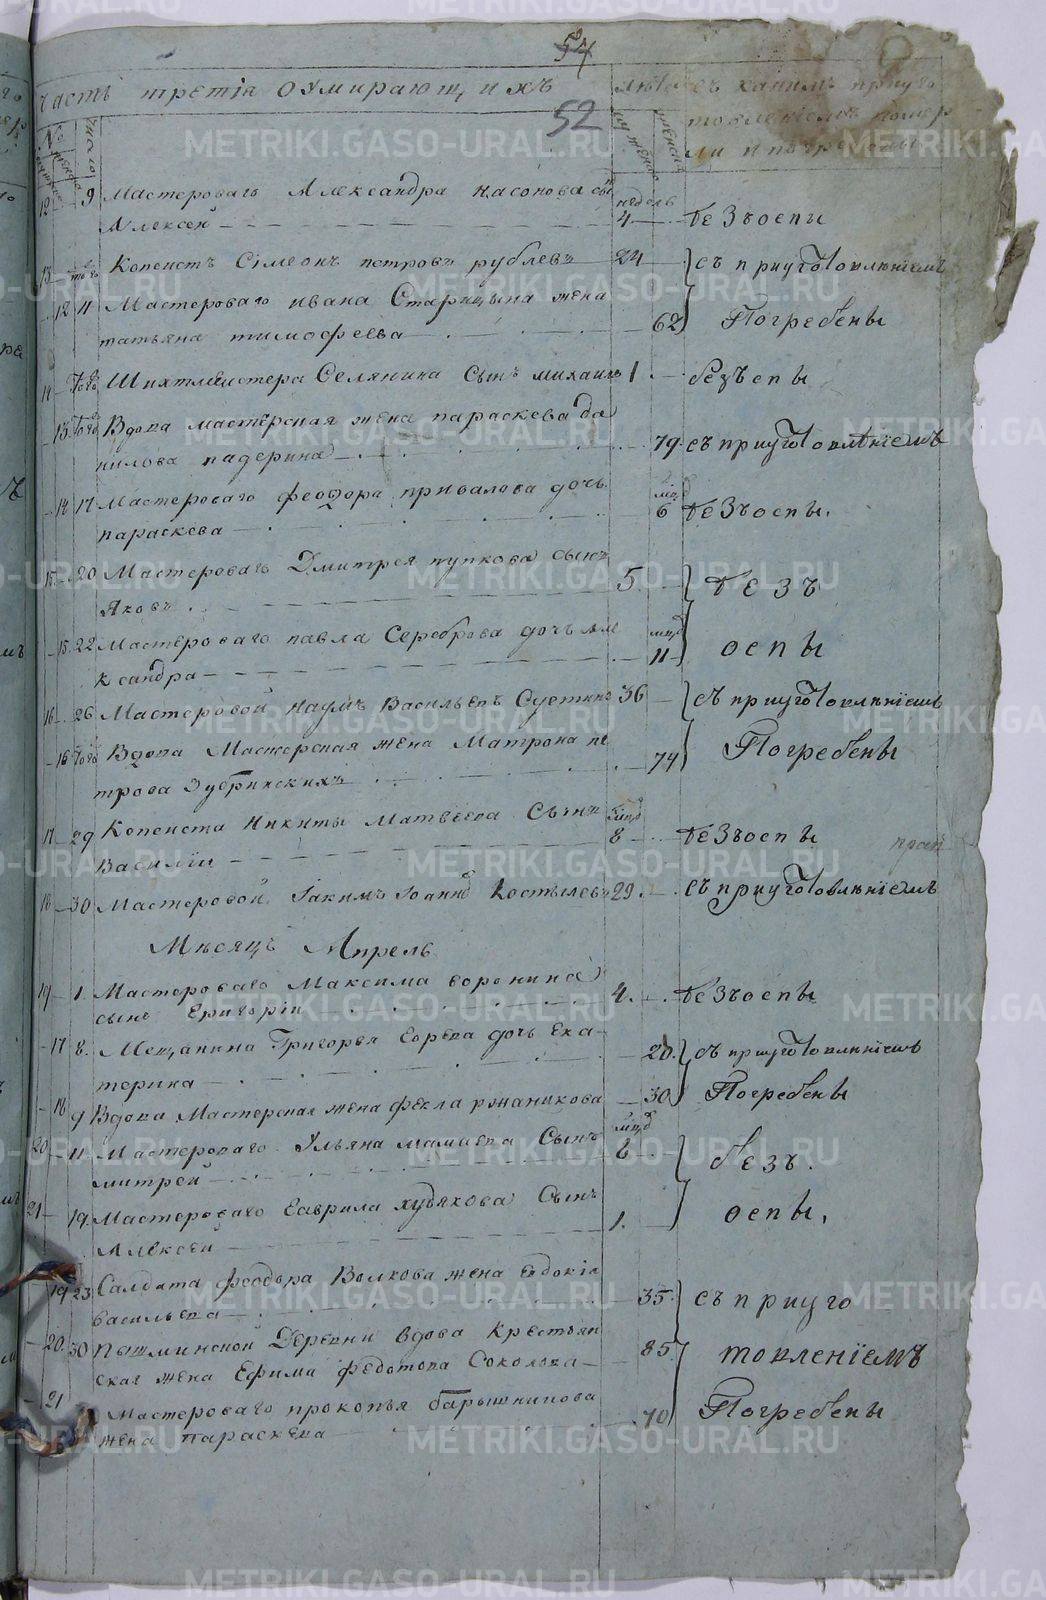 54
52
Часть третія оумирающихъ
Лѣта
съ какимъ приуго
товленіемъ помер
ли и погребены
№
число
мужеска
женска
мужеска
женска
12 — 9 Мастероваго Александра Насонова сынъ
Алексей — недель 4 — безъ оспы
13 — того Копеистъ Сімеонъ Петровъ Рублевъ — 24 — съ приуготовленіемъ
12 11 Мастероваго Ивана Старицына жена
татьяна тимофеева — 62 Погребены
14 того Шихтмейстера Селянина сынъ михаилъ 1 — безъ оспы
13 того Вдова мастерская жена параскева да
нилова падерина — 79 съ приуготовленіемъ
14 17 Мастероваго феодора привалова дочь
параскева — мцъ 6 безъ оспы.
15 — 20 Мастероваго Дмитрея пупкова сынъ
Яковъ — 5 — безъ
15 22 Мастероваго павла Сереброва дочь але
ксандра — мцъ 11 — оспы
16 26 Мастеровой наумъ Васильевъ Суетинъ 36 — съ приуготовленіемъ
16 того Вдова Мастерская жена Матрона пе
трова Зубринскихъ — 74 Погребены
17 — 29 Копеиста Никиты Матвеева Сынъ
Василіи — мцъ 8 — безъ оспы
18 — 30 Мастеровой Іакимъ Іоанновъ Костылевъ 29 — съ приуготовленіемъ
Мѣсяцъ Апрель
19 — 1 Мастероваго Максима воронина
сынъ Григоріи — 4 — безъ оспы
— 17 8 Мещанина Григорья дочь Ека-
терина — 20 съ приуготовленіемъ
— 18 9 Вдова Мастерская жена фекла романикова — 30 Погребены
20 — 11 Мастероваго Ульяна мамаева Сынъ
митреи — мцъ 6 — безъ
21 — 19 Мастероваго Гаврила худякова Сынъ
Алексеи — 1. — оспы,
19 23 Салдата феодора Волкова жена евдокіа
васильева — 35 съ приуго
— 20 30 Пышминской Деревни вдова крестьян
ская жена Ефима федотова Соколова — 85 товленіемъ
— 21 Мастероваго прокопья барышникова
жена параскева — 70 Погребены
METRIKI.GASO-URAL.RU